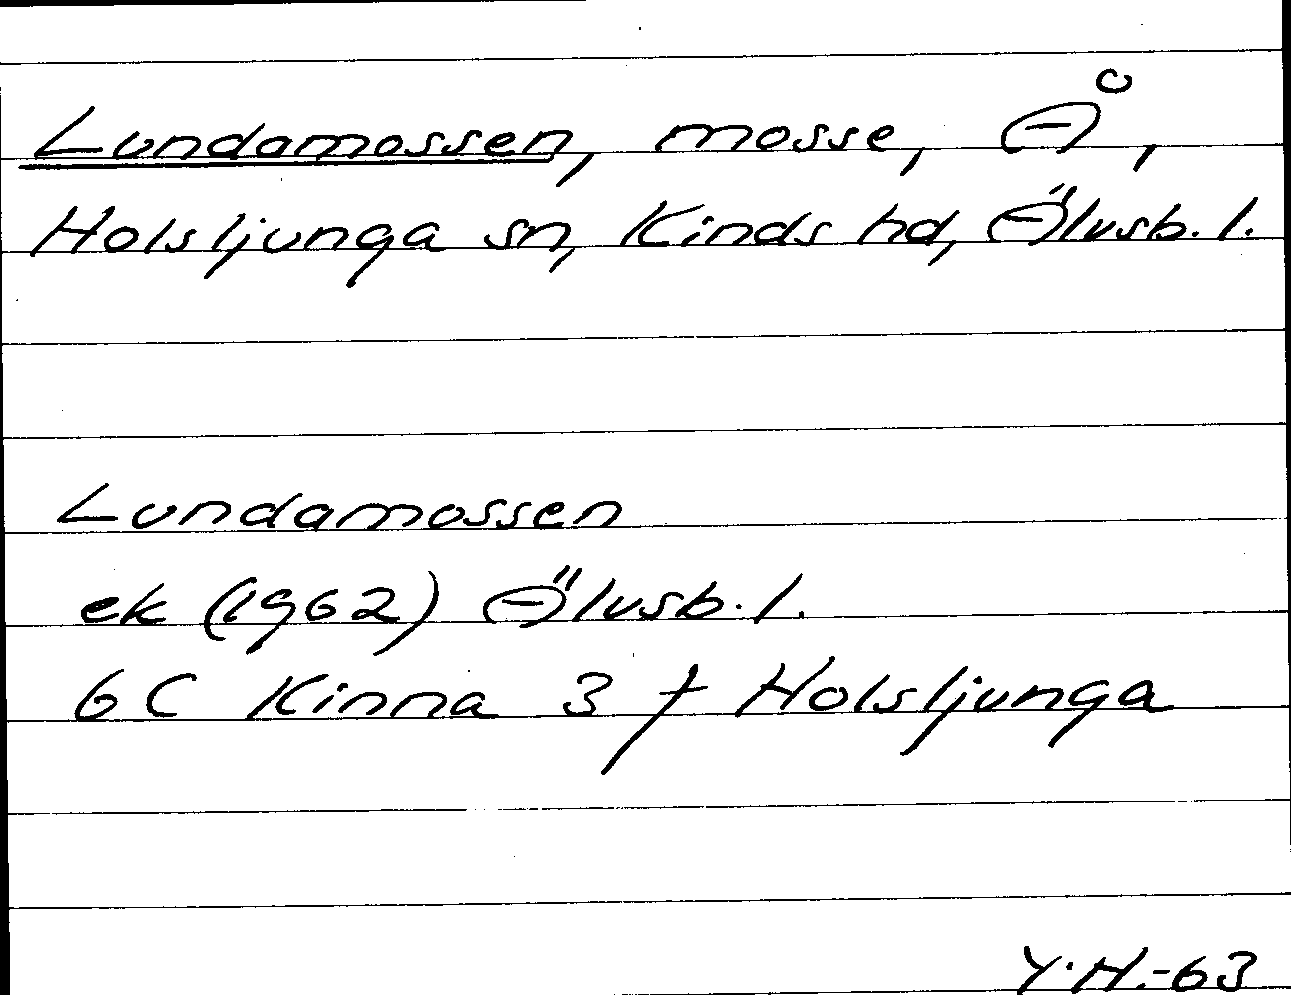 Lundamossen, mosse, Å,
Holsljunga sn, Kinds hd, Älvsb. l.
Lundamossen
ek (1962) Älvsb. l.
6 C Kinna 3 f Holsljunga
Y.H.-63